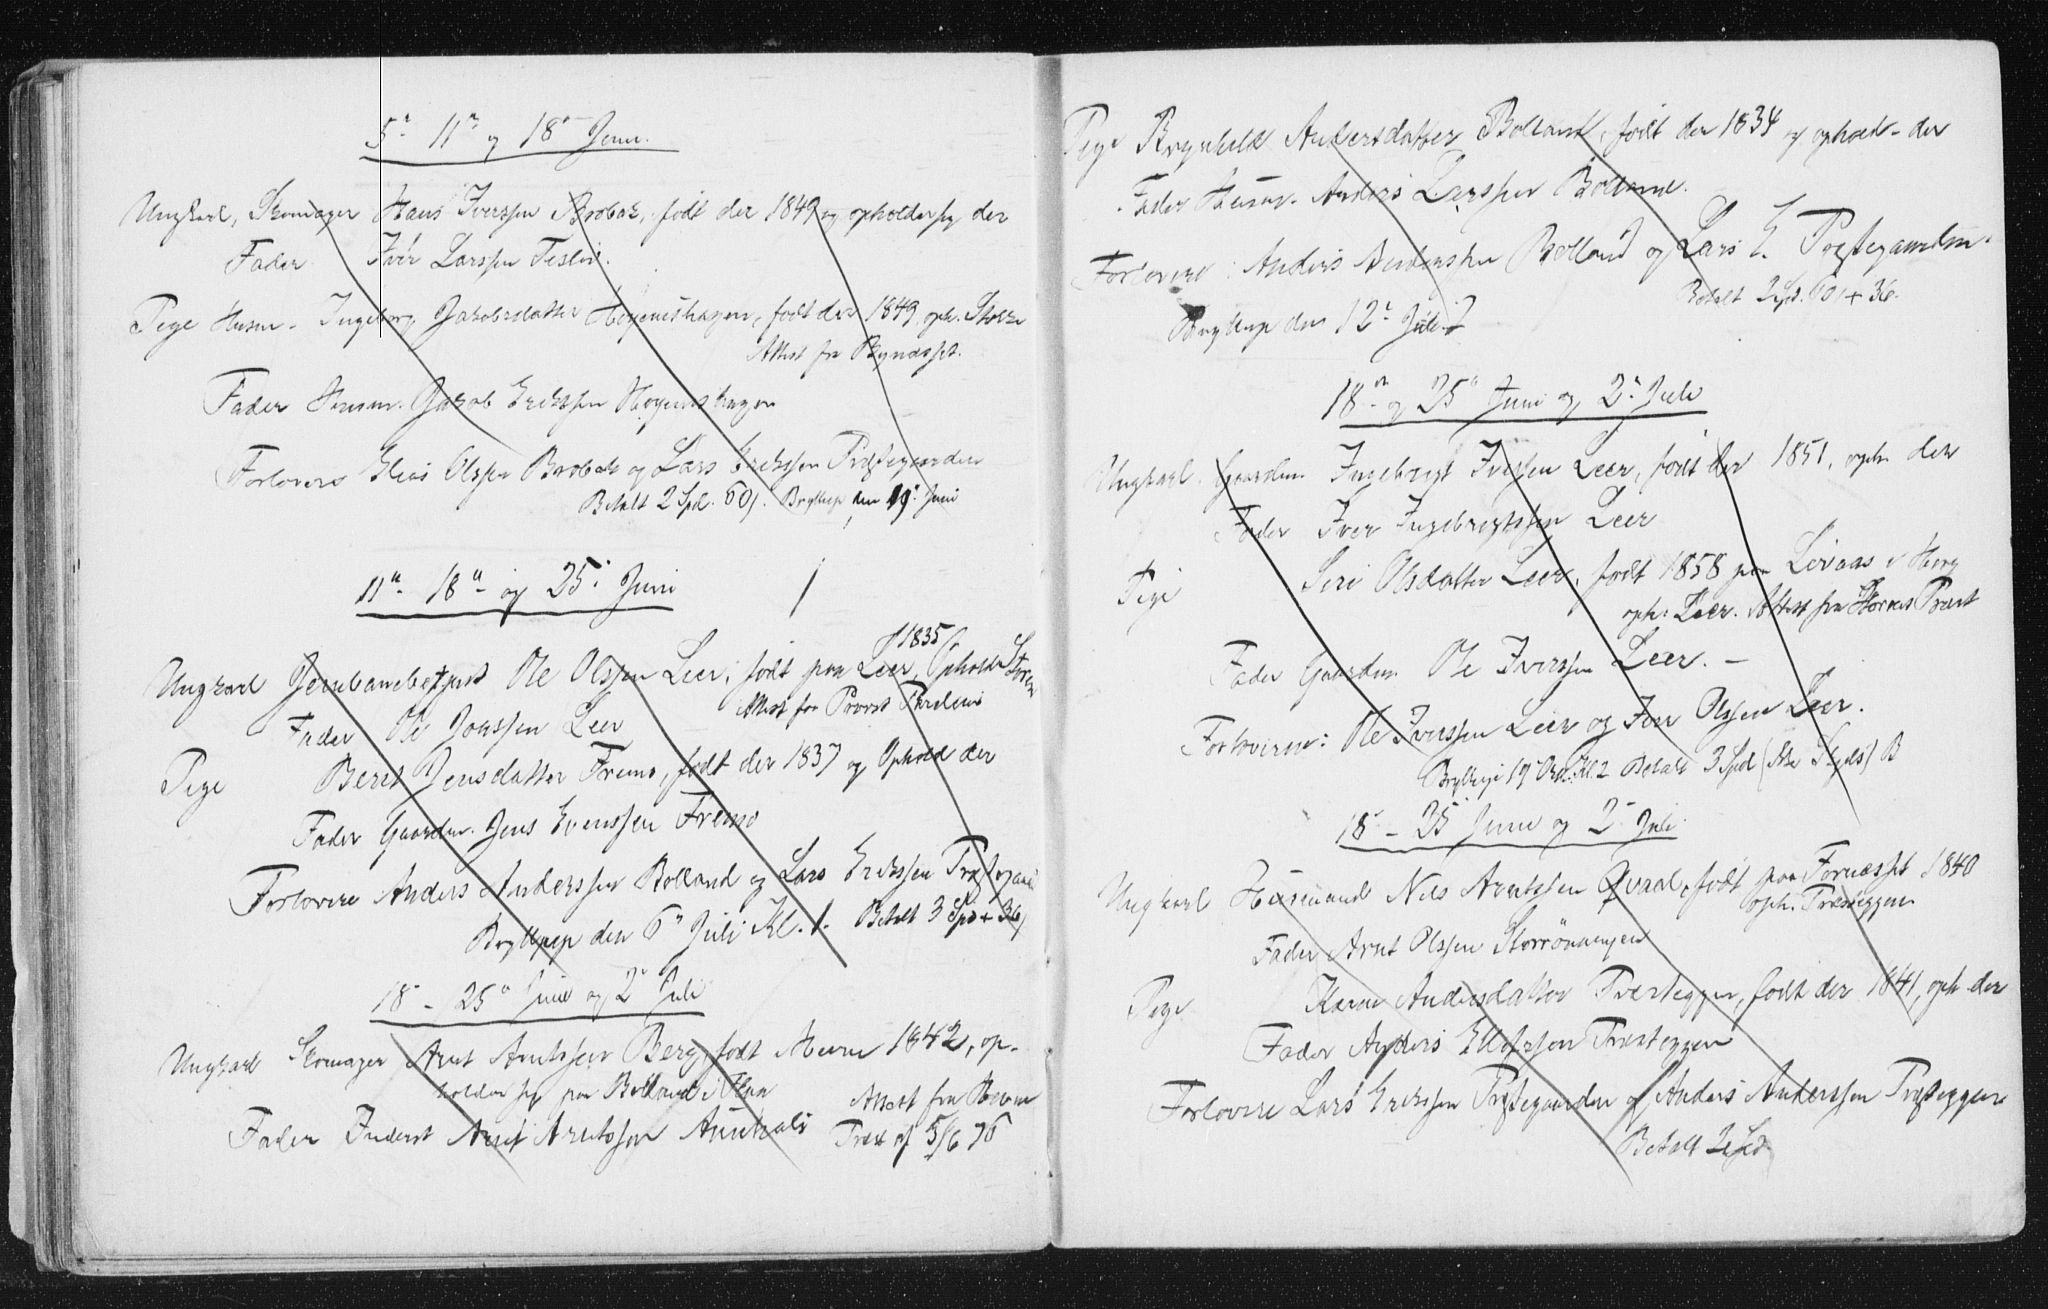 5te 11te og 18de Juni.
Ungkarl, Skomager Hans Iverssen Brobak, født der 1849 og opholder sig der
Fader Iver Larssen Teslie.
Pige Husm. Ingeborg Jakobsdatter Høyemshagen, født der 1849, oph. Stokke
Attest fra Bynæsset.
Fader Husm. Jakob Erikssen Høyemshagen
Forlovere Elias Olssen Brobak og Lars Erikssen Præstegaarden
Betalt 2 Spd. 60 s. Bryllup den 19de Juni
11te 18de og 25de Juni
1835
Ungkarl Jernbanebetjent Ole Olssen Leer, født paa Leer, Opholder Støren
Attest fra Provst
Fader Ole Jonssen Leer
Pige Beret Jensdatter Fremo, født der 1837 og Ophold der
Fader Gaardm. Jens Evenssen Fremo
Forlovere Anders Anderssen Bolland og Lars Erikssen Præstegaard
Bryllup den 6te Juli Kl. 1. Betalt 3 Spd + 36
18de - 25de Juni og 2den Juli
Ungkarl Skomager Arnt Arntssen Berg, født 1842, op-
holder sig paa Bolland i Flaa Attest fra
Fader Inderst Arnt Arntssen Præst af 5/6 76
Pige Brynhild Andersdatter Bolland, født der 1834 og ophold. der
Fader Husm. Anders Larssen Bolland.
Forlovere: Anders Anderssen Bolland og Lars E. Præstegaarden.
Betalt 2 Spd. 60 + 36.
Bryllup den 12te Juli
18de og 25de Juni og 2den Juli
Ungkarl Gaardm. Ingebrigt Iverssen Leer, født der 1851, oph. der
Fader Iver Ingebrigtssen Leer
Pige Siri Olsdatter Leer, født 1858 paa Løvaas i Horg
oph. Leer. Attest fra Horgs Præst
Fader Gaardm. Ole Iverssen Leer. -
Forlovere: Ole Iverssen Leer og Iver Olssen Leer.
Bryllup 19 Kl. 2 Betalt 3 Spd B
18de - 25de Juni og 2den Juli
Ungkarl Husmand Nils Arntssen Qvaal, født paa Fornæsset 1840
oph. Træeggen
Fader Arnt Olssen Storrønningen
Pige Karen Andersdatter Træeggen, født der 1841, oph. der
Fader Anders Ellefssen Træeggen
Forlovere Lars Erikssen Præstegaarden og Anders Anderssen Træeggen
Betalt 2 Spd